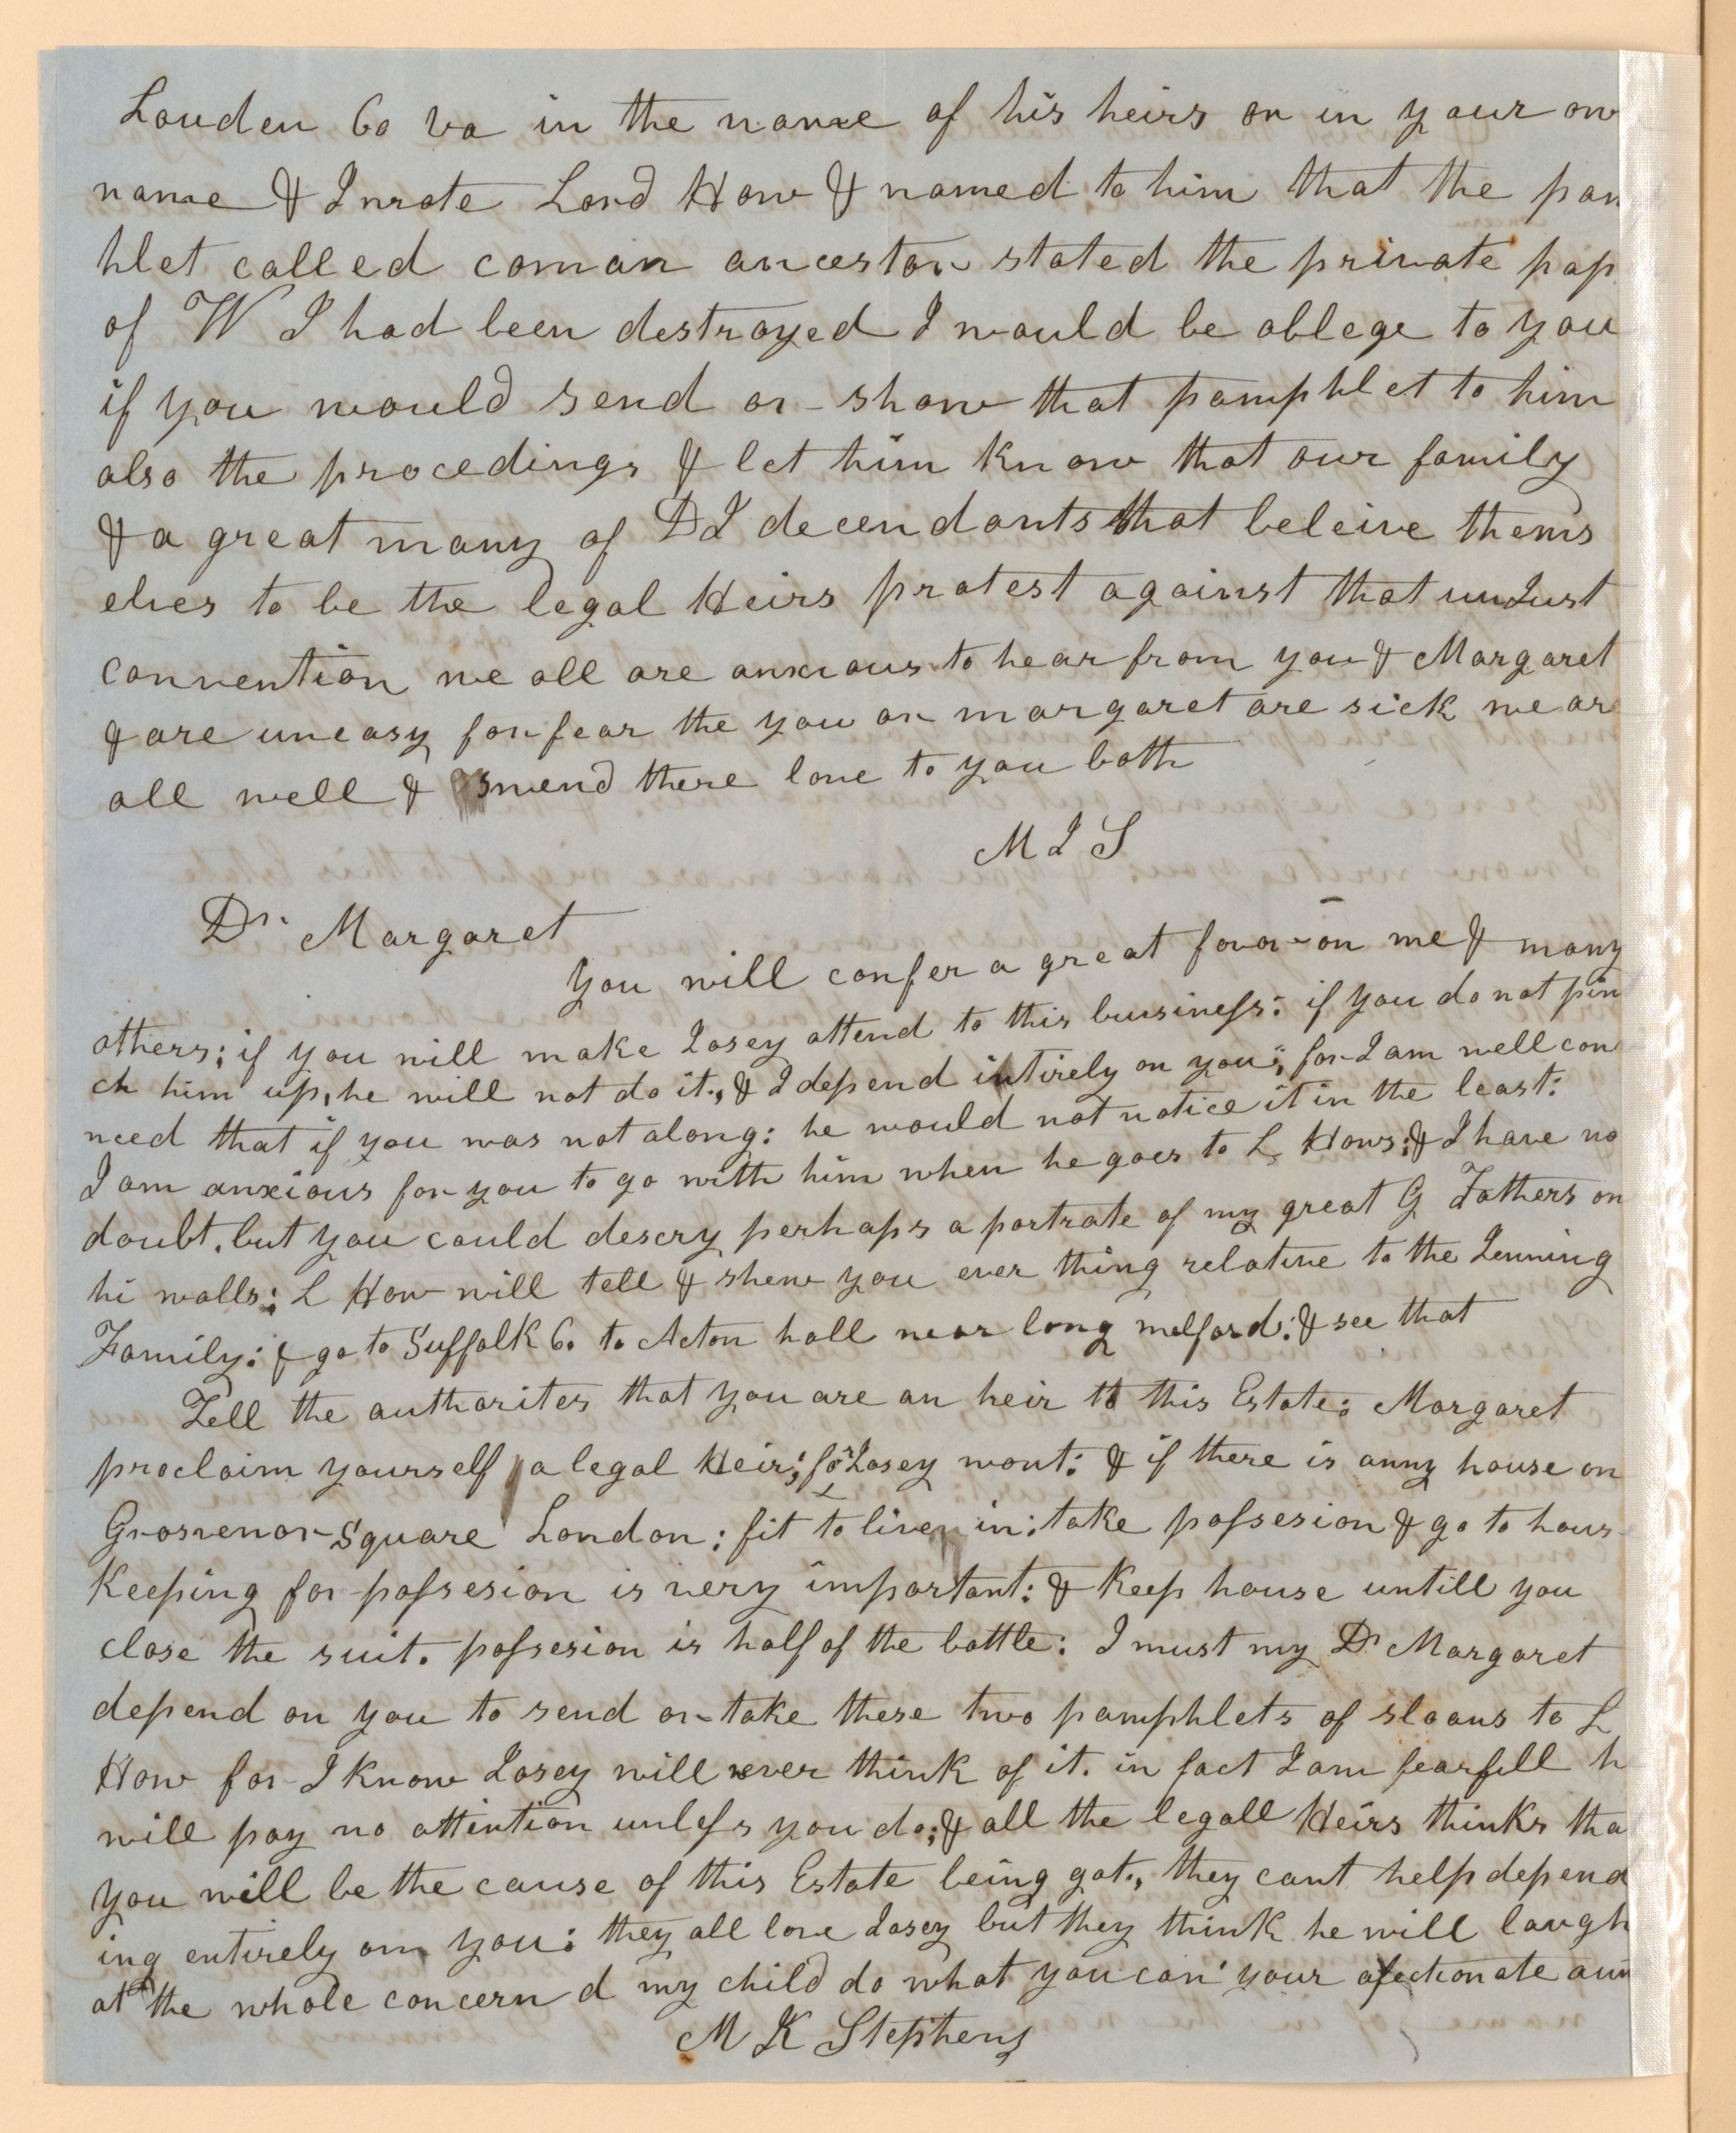 Louden Co Va in the name of his heirs or in your ow
name & I wrote Lord How & named to him that the pam
hlet called coman ancestor stated the private pap
of W J had been destroyed I would be oblege to you
if you would send or show that pamphlet to him
also the procedings & let him know that our family
& a great many of DJ decendants that beleive thems
elves to be the legal Heirs protest against that unJust
convention we all are anxious to hear from you & Margaret
& are uneasy for fear the you or margaret are sick we are
all well & send there love to you both
M J S
Dr. Margaret
You will confer a great favor on me & many
others; if you will make Josey attend to this buisiness: if you do not pin
ch him up, he will not do it., & I depend intirely on you; for I am well con
need that if you was not along: he would not notice it in the least:
I am anxious for you to go with him when he goes to L Hows: & I have no
doubt, but you could descry perhaps a portrate of my great G Fathers on
hi walls; L How will tell & shew you ever thing relative to the Jenning
Family: & go to Suffolk Co to Acton hall near long melford: & see that
Tell the authorites that you are an heir to this Estate: Margaret
proclaim yourself a legal Heir; for Josey wont: & if there is anny house on
Grosvenor Square London: fit to live in: take possesion & go to hous
Keeping for possesion is very important: & Keep house untill you
close the suit. possesion is half of the battle: I must my Dr Margaret
depend on you to send or take these two pamphlets of sloans to L
How for I know Josey will never think of it. in fact I am fearfull h
will pay no attention unless you do; & all the legall Heirs thinks tha
you will be the cause of this Estate being got., they cant help depend
ing entirely on you: they all love Josey but they think he will laugh
at the whole concern d my child do what you can your afectionate aun
M K Stephens